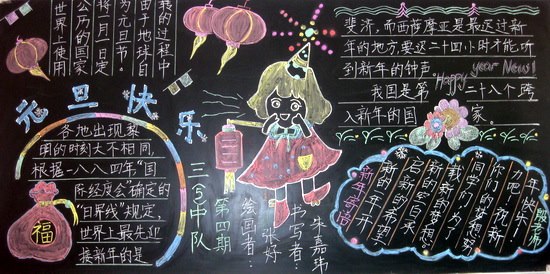 世界上使用
公历的国家
将一月一日定
为元旦节。
由于地球自
转的过程中
元旦快乐
各地出现黎
明的时刻大不相同,
根据一八八四年“国
际经度会确定的
“日界线”规定,
世界上最先迎
接新年的是
福
斐济,而西萨摩亚是最迟过新
年的地方,要迟二十四小时才能听
到新年的钟声。
Happy year New!
我国是第二十八个跨
入新年的国家。
三(5)中队
第四期
绘画者:
张好
书写者:
朱嘉玮
新年寄语
新年开
启新的希望,
新的空白承
载新的梦想。
同学们,为了
你们的梦想努
力吧!祝新
年快乐!